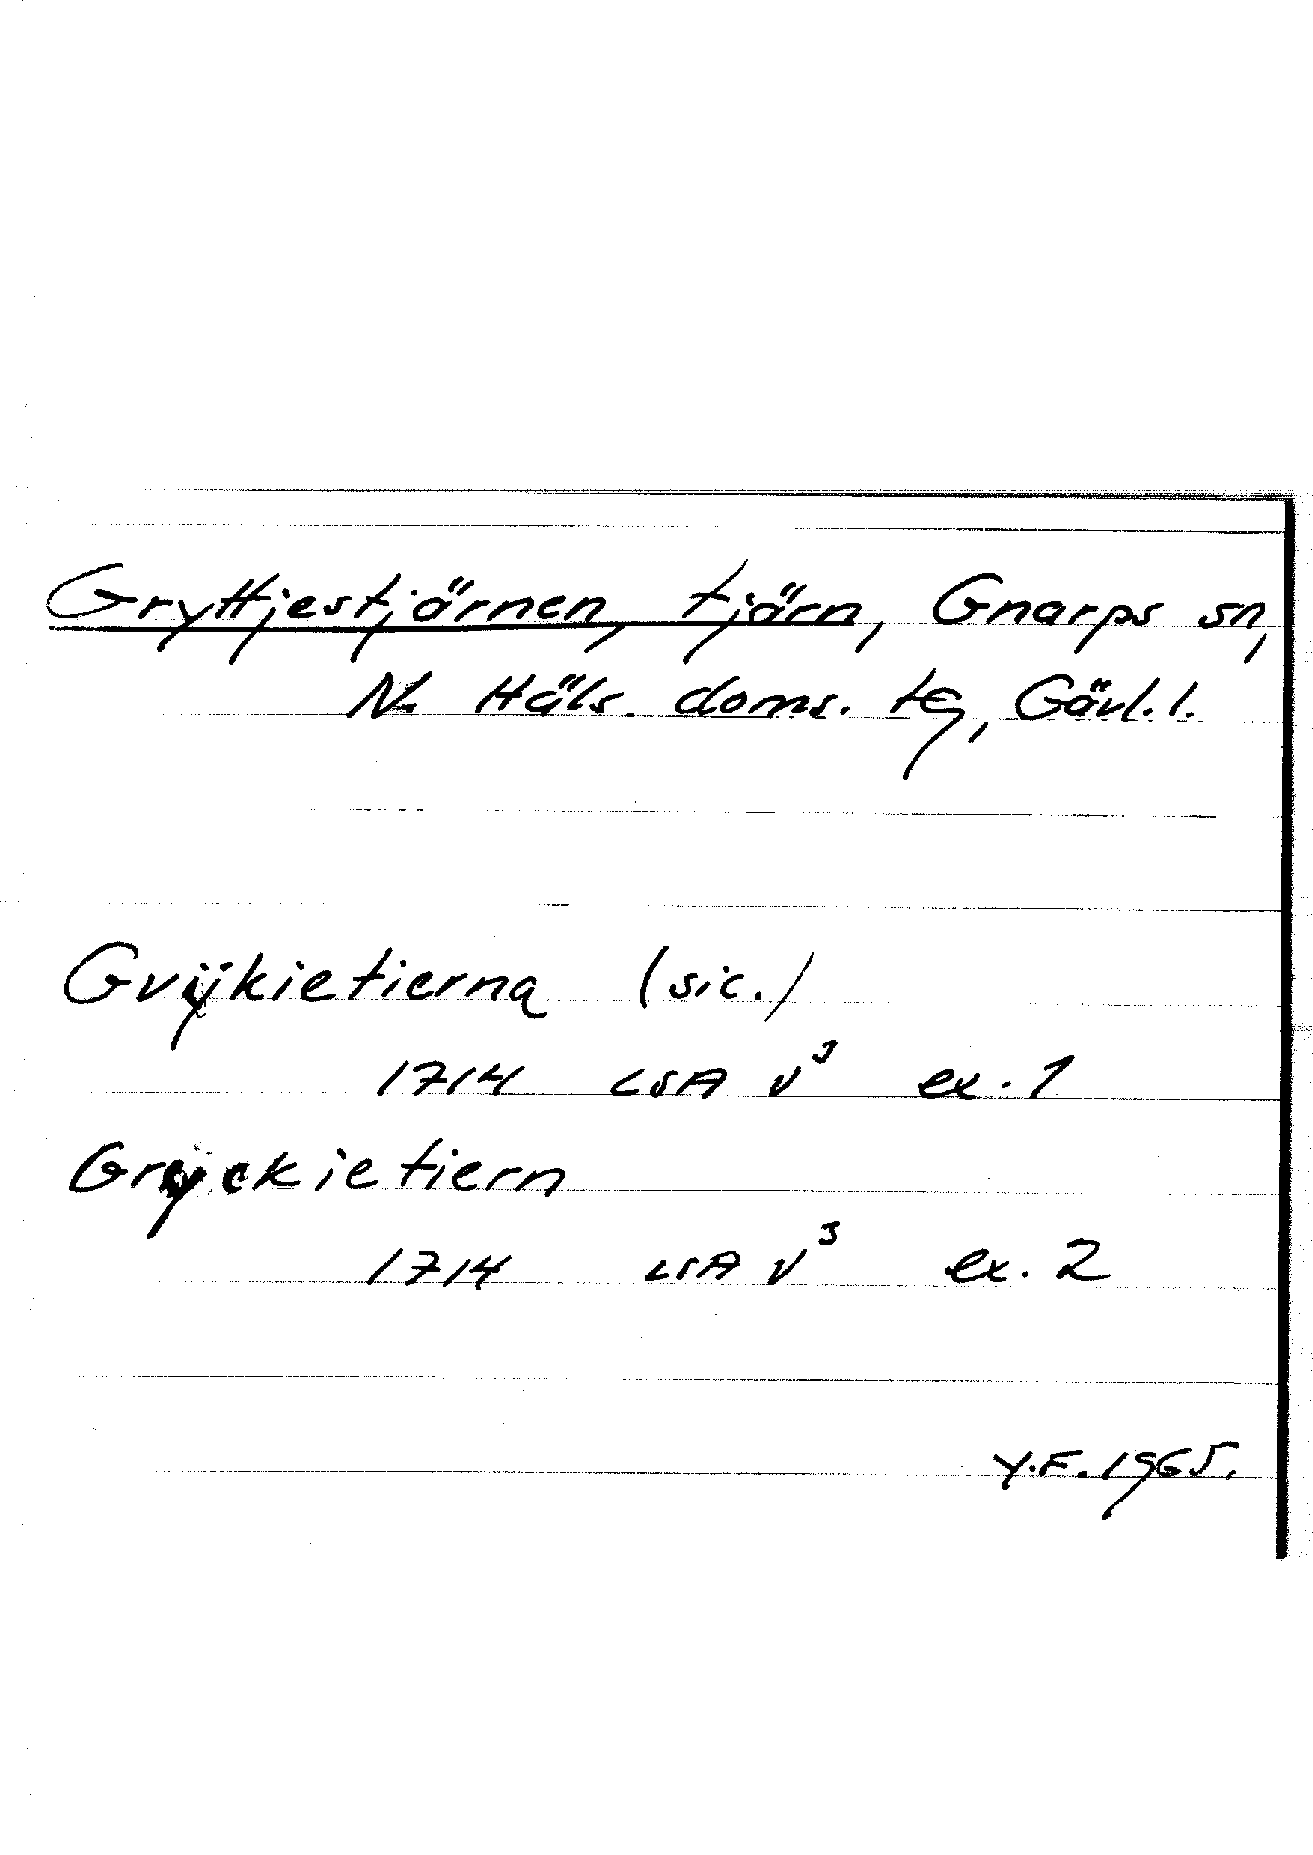 Gryttjestjärnen, tjärn, Gnarps sn,
N. Häls. doms. tg, Gävl. l.
Gvÿkietierna (sic.)
1714 LSA V³ ex. 1
Gryckietiern
1714 LSA V³ ex. 2
Y.F. 1965.